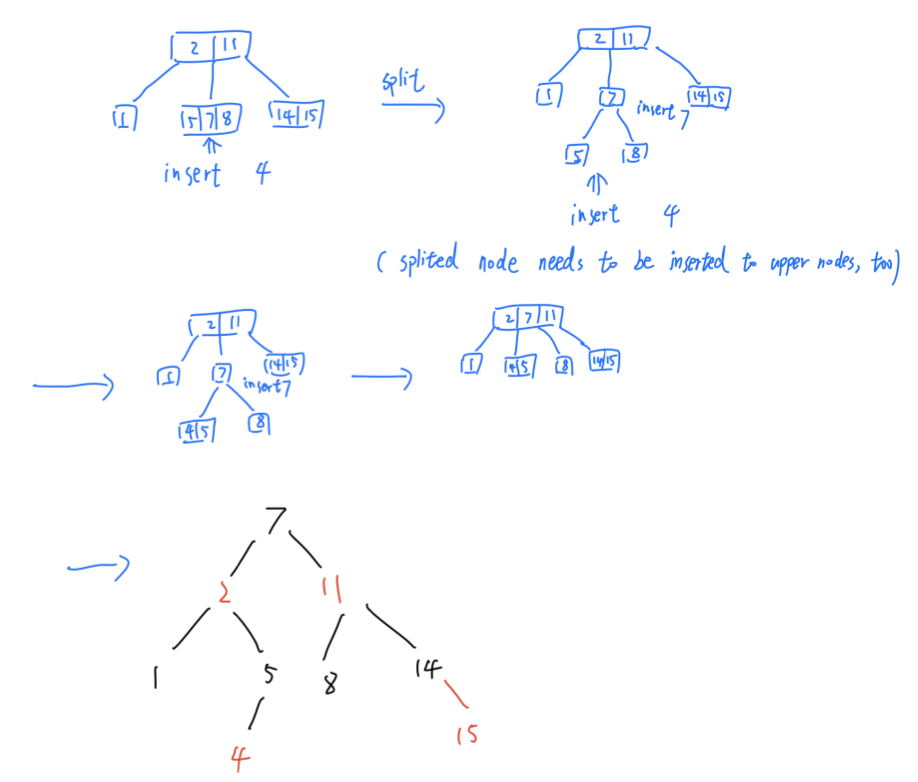 2 11
1 5 7 8 14 15
insert 4
split
2 11
1 7 14 15
insert 7
5 8
insert 4
( splited node needs to be inserted to upper nodes, too)
2 11
1 7 14 15
insert 7
4 5 8
2 7 11
1 4 5 8 14 15
7
2 11
1 5 8 14
4 15